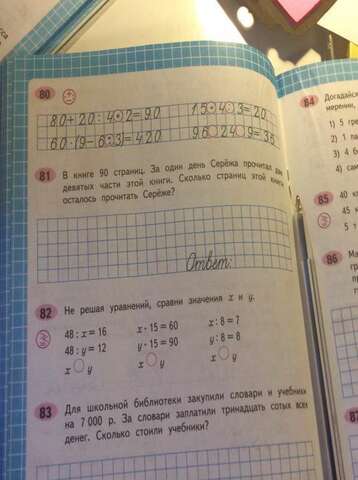 80
80+20:4·2=90
15·4:3=20
60·(9-6:3)=420
96 ○ 24 ○ 9=36
81 В книге 90 страниц. За один день Серёжа прочитал две
девятых части этой книги. Сколько страниц этой книги
осталось прочитать Серёже?
Ответ:
82 Не решая уравнений, сравни значения x и y.
48 : x = 16 x · 15 = 60 x : 8 = 7
48 : y = 12 y · 15 = 90 y : 8 = 8
x ○ y x ○ y x ○ y
83 Для школьной библиотеки закупили словари и учебники
на 7 000 р. За словари заплатили тринадцать сотых всех
денег. Сколько стоили учебники?
84 Догадайся
мерении,
1) 5 гре
2) 1
3) 4
4)
85 40
5 т
86 Ма